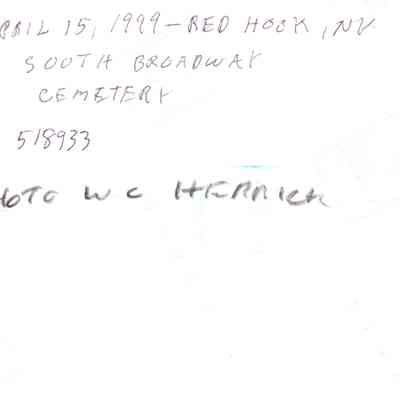 APRIL 15, 1999 - RED HOOK, NY
SOUTH BROADWAY
CEMETERY
518933
OTO W C HERRICK